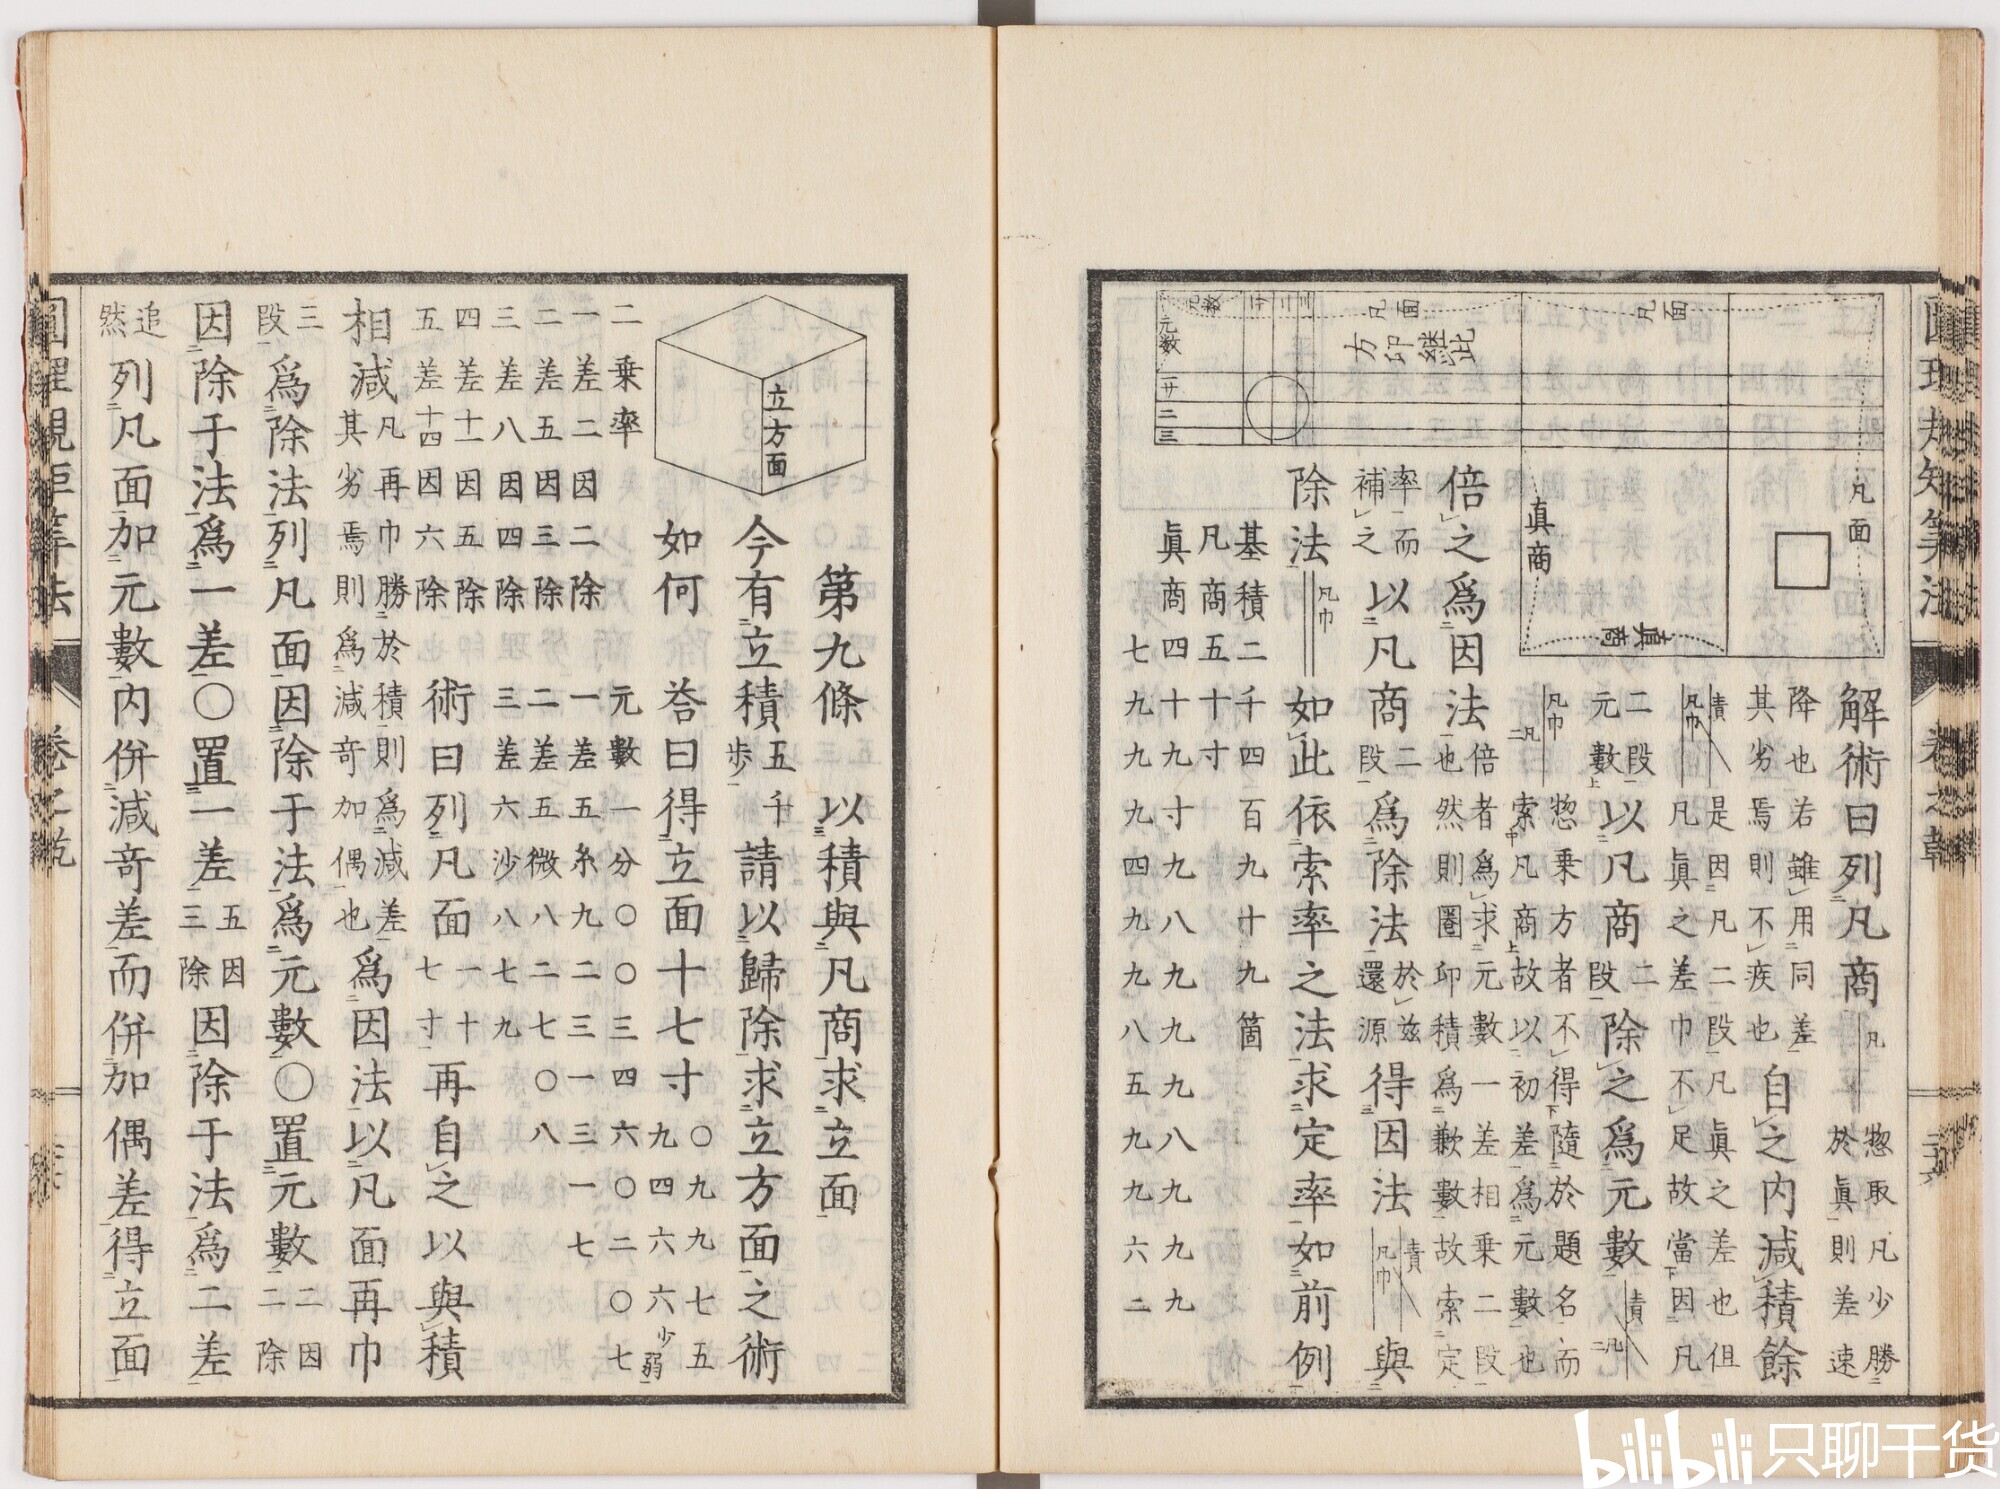 圓理規矩算法
卷之乾
凡面
眞商
眞商
凡面
凡面
元數
一廿
二
三
此継印方
解術曰列凡商
凡
惣取凡少勝
於眞則差速
降也若雖用同差
其劣焉則不疾也
自之内減積餘
積
凡巾
是因凡二段凡眞之差也但
凡眞之差巾不足故當因凡
二段
元數
以凡商
二
段
除之爲元數
積
二凡
凡巾
二凡
惣乗方者不得隨於題名而
索凡商故以初差爲元數也
倍之爲因法
倍者爲求元數一差相乗二段
也然則圏卬積爲歉數故索定
率而
補之
以凡商
二
段
爲除法
於茲
還源
得因法
積
凡巾
與
除法
凡巾
如此依索率之法求定率如前例
基積二千四百九十九箇
凡商五十寸
眞商四十九寸九八九九九八九九九
七九九九四九九八五九九六二
第九條　以積與凡商求立面
今有立積
五千
步
請以歸除求立方面之術
立方面
如何　荅曰得立面十七寸
〇九九七五
九四六六少弱
二乗率　元數一分〇〇三四六〇二〇七
一差二因二除　一差五糸九二三一三一七
二差五因三除　二差五微八二七〇八
三差八因四除　三差六沙八七九
四差十一因五除
五差十四因六除
術曰列凡面
一十
七寸
再自之以與積
相減
凡再巾勝於積則爲減差
其劣焉則爲減奇加偶也
爲因法以凡面再巾
三
段
爲除法列凡面因除于法爲元數〇置元數
二因
二除
因除于法爲一差〇置一差
五因
三除
因除于法爲二差
追
然
列凡面加元數内併減奇差而併加偶差得立面
圓理規矩算法
卷之乾
bilibili 只聊干货